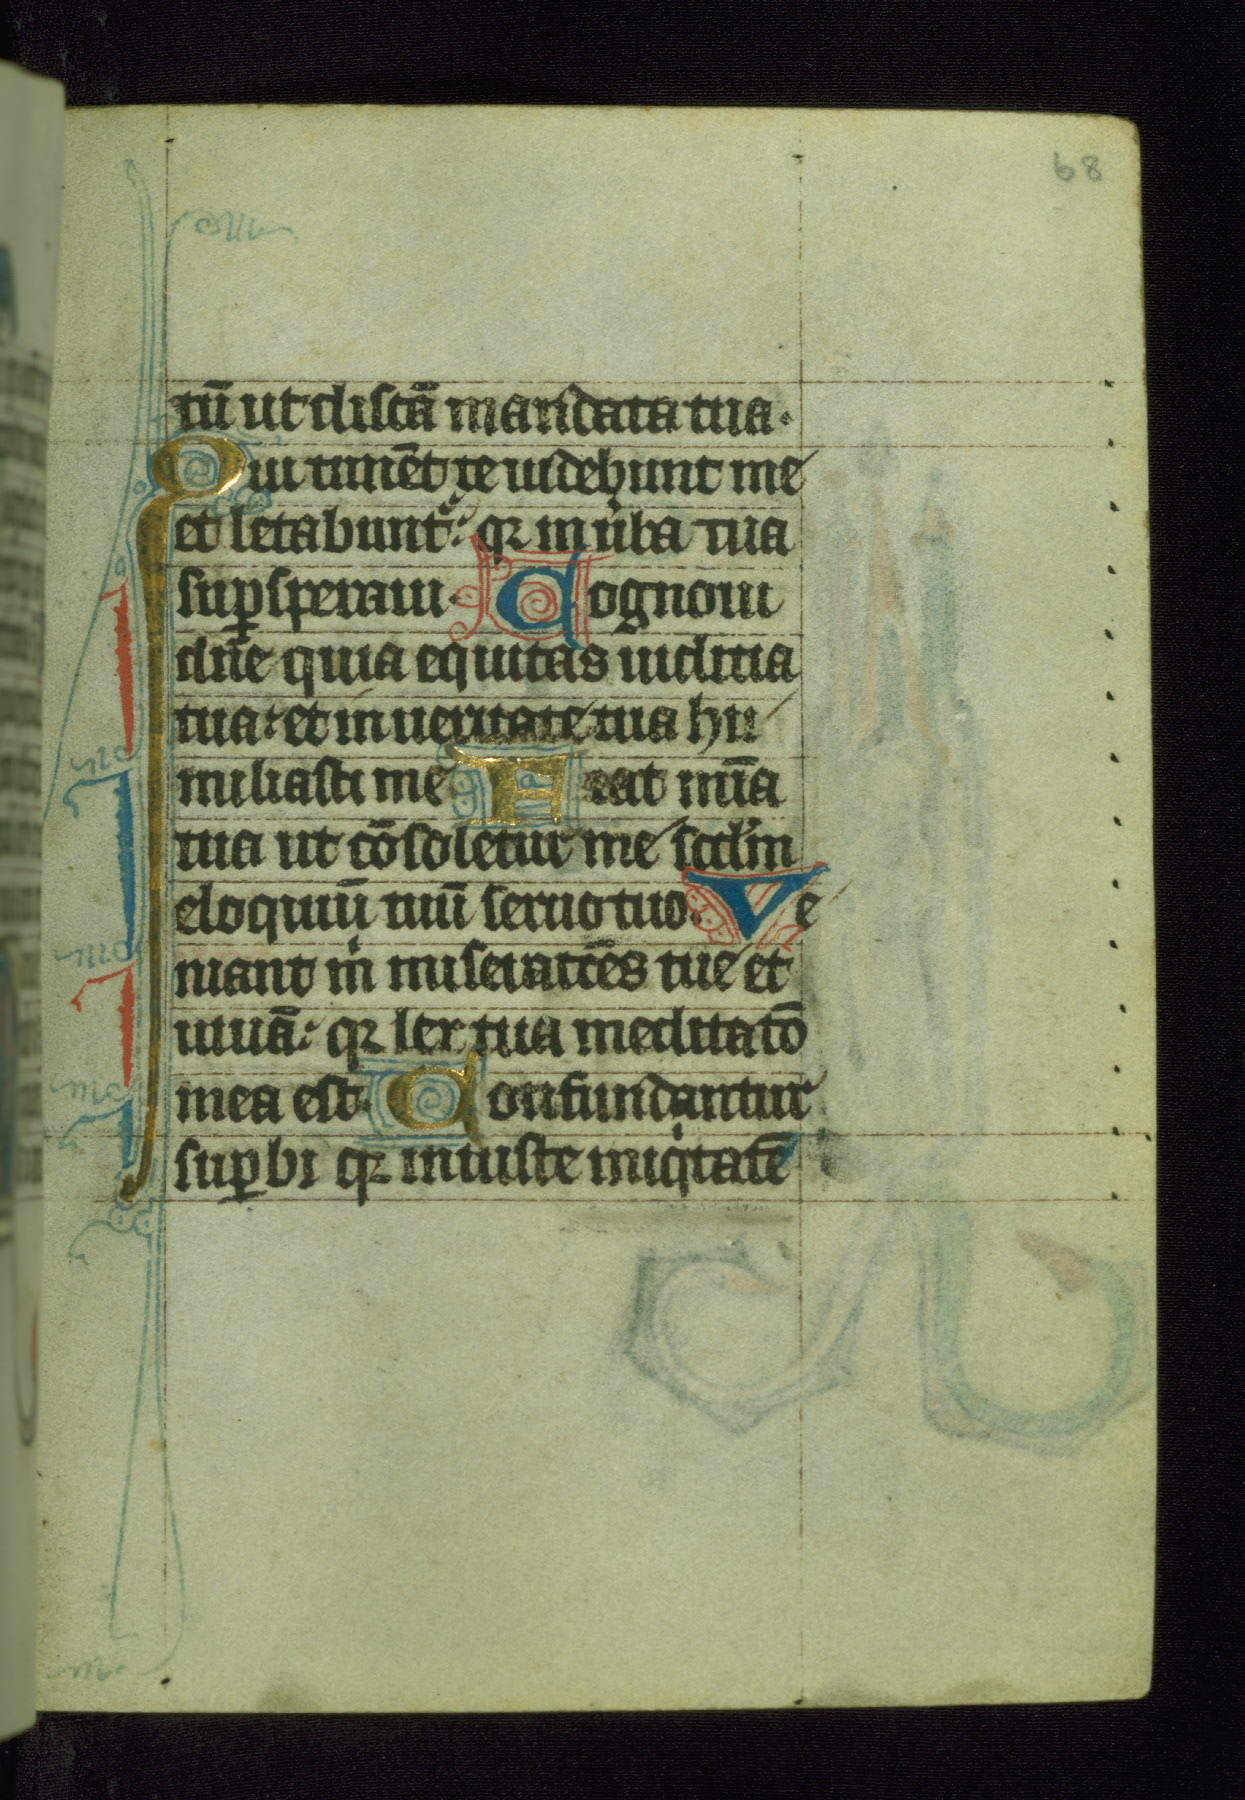 68
tū ut discā mandata tua.
Qui timēt te uidebunt me
et letabunt᷑: qꝛ in ūba tua
sup̱speraui. Cognoui
dn̄e quia equitas iudicia
tua: et in ueritate tua hu
miliasti me Fiat mīa
tua ut cōsoletur me scdm̄
eloquiū tuū seruo tuo. Ve
niant m̍ miseratōes tue et
uiuā: qꝛ lex tua meditatō
mea est. Confundantur
sup̱bi qꝛ iniuste iniqͥtatē